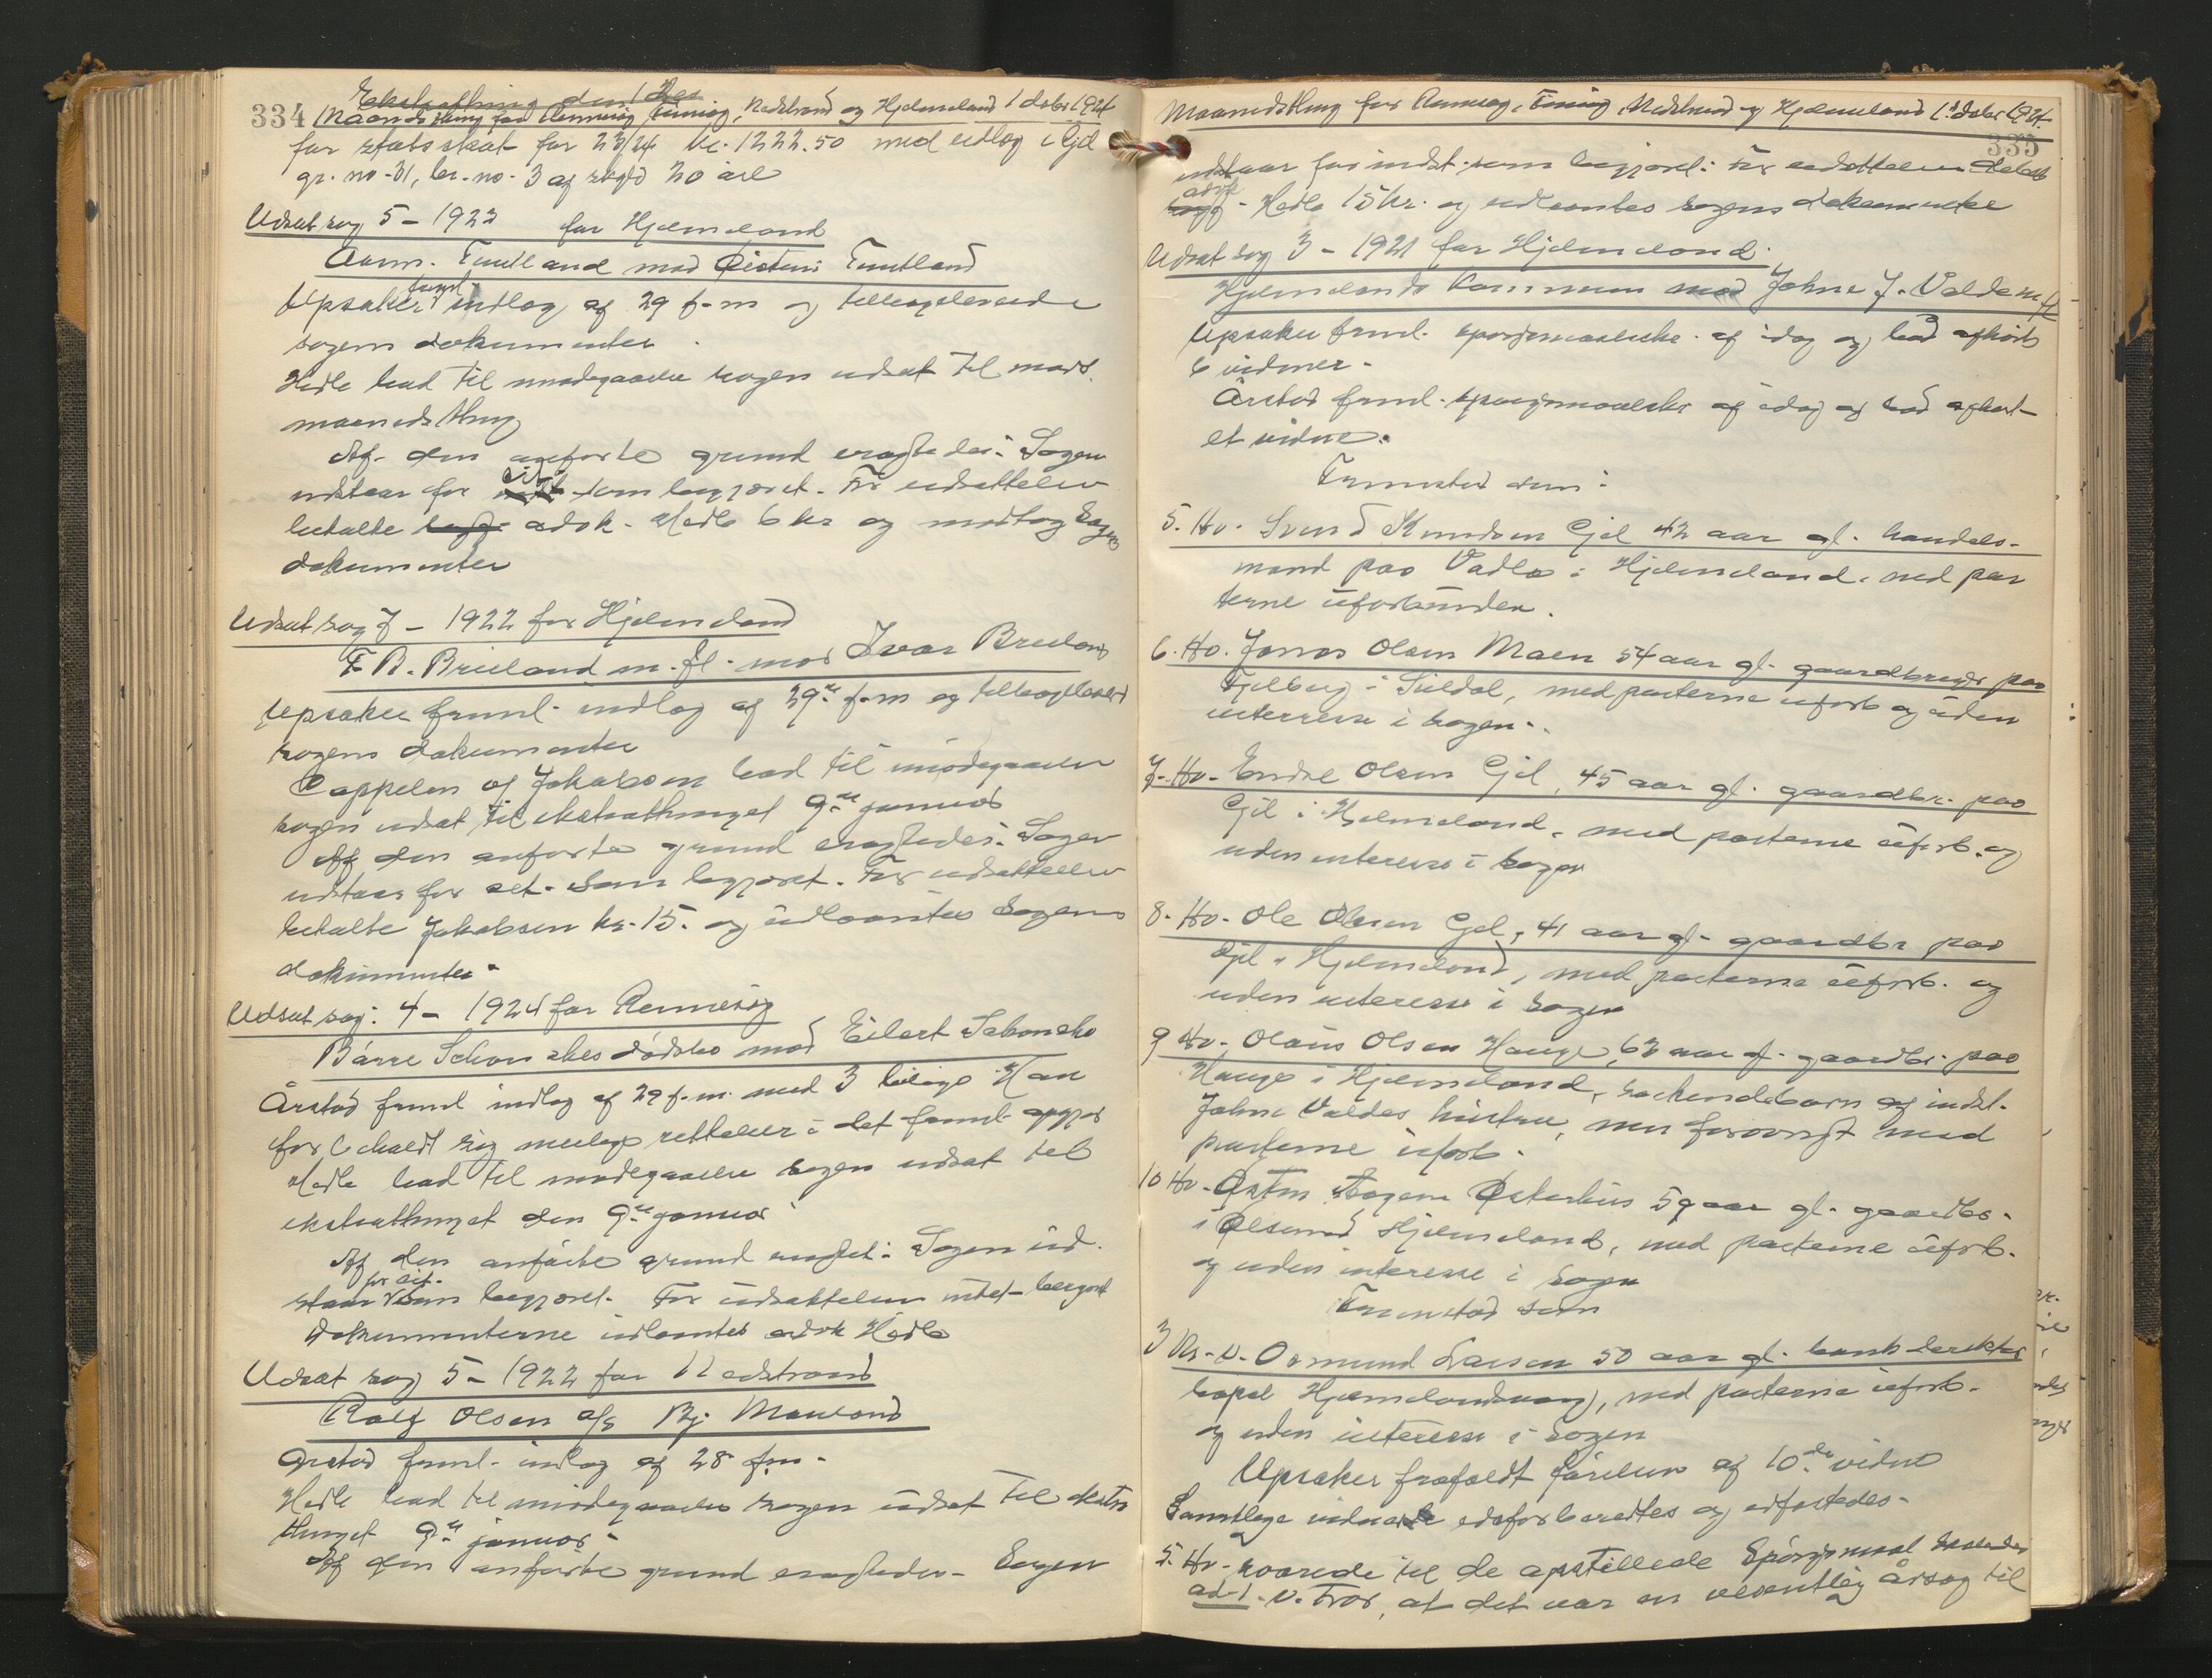 334 Ekstrathing den 1 Des
Maanedsthing for Rennesøy, Finnøy, Nedstrand og Hjelmeland 1 debr 1924
for statsskat for 23/24 kr. 1222.50 med utlæg i Gjil
gr. no. 31, br. no. 3 af skyld 20 øre
Udsat sag 5 - 1923 for Hjelmeland
Aasm. Tuntland mod Øistein Tuntland
Upsaker freml. indlæg af 29 f.m og tilbageleverede
sagens dokumenter.
Hedle bad til imødegaaelse sagen udsat til mars
maanedsthing
Af den anførte grund eragtedes: Sagen
udstaar for cit. som begjæret. For udsættelsen
betalte sagf. advok. Hedle 6 kr og modtog sagens
dokumenter
Udsat sag 7 - 1922 for Hjelmeland
T. B. Brieland m. fl. mod Ivar Brieland
Upsaker freml. indlæg af 29de f.m og tilbageleverede
sagens dokumenter
Cappelen og Jakobsen bad til imødegaaelse
sagen udsat til ekstrathinget 9de januar
Af den anførte grund eragtedes: Sagen
udstaar for cit. som begjæret. For udsættelsen
betalte Jakobsen kr. 15. og udlaantes sagens
dokumenter.
Udsat sag: 4 - 1924 for Rennesøy
Børre Schanches dødsbo mod Eilert Schanche
Årstad freml indlæg af 29 f.m. med 3 bilage Han
forbeholdt sig mulige rettelser i det freml. opgjør
Hedle bad til imødegaaelse sagen udsat til
ekstrathinget den 9de januar
Af den anførte grund eragtet: Sagen ud-
staar for cit. som begjæret. For udsættelsen intet beregnet
Dokumenterne udlaantes advok Hedle
Udsat sag 5 - 1922 for Nedstrand
Rolf Olsen a/s Bj. Mæland
Årstad freml. indlæg af 28 f.m.
Hedle bad til imødegaaelse sagen udsat til ekstra
thinget 9de januar.
Af den anførte grund eragtedes - Sagen
Maanedsthing for Rennesøy, Finnøy, Nedstrand og Hjelmeland 1ste debr 1924.
335
udstaar for indst. som begjæret. For udsættelsen betalte
sagf. advok. Hedle 15 kr. og udlaantes sagens dokumenter
Udsat sag 3 - 1921 for Hjelmeland.
Hjelmelands kommune mod Johne J. Valde m. fl.
Upsaker freml. spørsmaalsliste af idag og bad afhørt
6 vidner.
Årstad freml. spørgsmaalsliste af idag og bad afhørt
et vidne.
Fremstod som:
5. Hv. Svend Knudsen Gjil 42 aar gl. handels-
mand paa Vadla i Hjelmeland, med par
terne uforbunden.
6. Hv. Jonas Olsen Maen 54 aar gl. gaardbruger paa
Fjelberg i Suldal, med parterne uforb og uden
interesse i sagen.
7. Hv. Endre Olsen Gjil, 45 aar gl. gaardbr. paa
Gjil i Hjelmeland, med parterne uforb. og
uden interesse i sagen
8. Hv. Ole Olsen Gjil, 41 aar gl. gaardbr paa
Gjil i Hjelmeland, med parterne uforb. og
uden interesse i sagen
9 Hv. Olaus Olsen Hauge, 63 aar gl. gaardbr. paa
Hauge i Hjelmeland, søskendebarn af indst.
Johne Valdes hustru, men forøvrigt med
parterne uforb.
10 Hv. Østen Aagen Østerhus 59 aar gl. gaardbr.
i Ølsund Hjelmeland, med parterne uforb.
og uden interesse i sagen
Fremstod som
3 Kv. v. Osmund Larsen 50 aar gl. bankdirektør
bopæl Hjelmelandsvaag, med parterne uforb.
og uden interesse i sagen
Upsaker frafaldt førelsen af 10de vidne
Samtlige vidner edsforberedtes og edfæstedes.
5. Hv. svarede til de opstillede Spørgsmaal saaledes
ad 1. V. tror, at det var en væsentlig årsag til